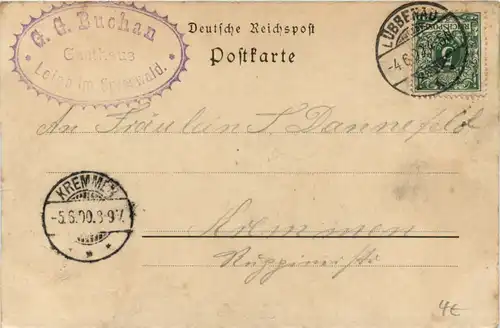 G. G. Buchan
Gasthaus
Leipe im Spreewald.
Deutsche Reichspost
Postkarte
LÜBBENAU
-4.6.00.
An Fräulein S. Dannefeld
KREMMEN
-5.6.00.8-9V.
Kremmen
Ruppinerstr.
4€